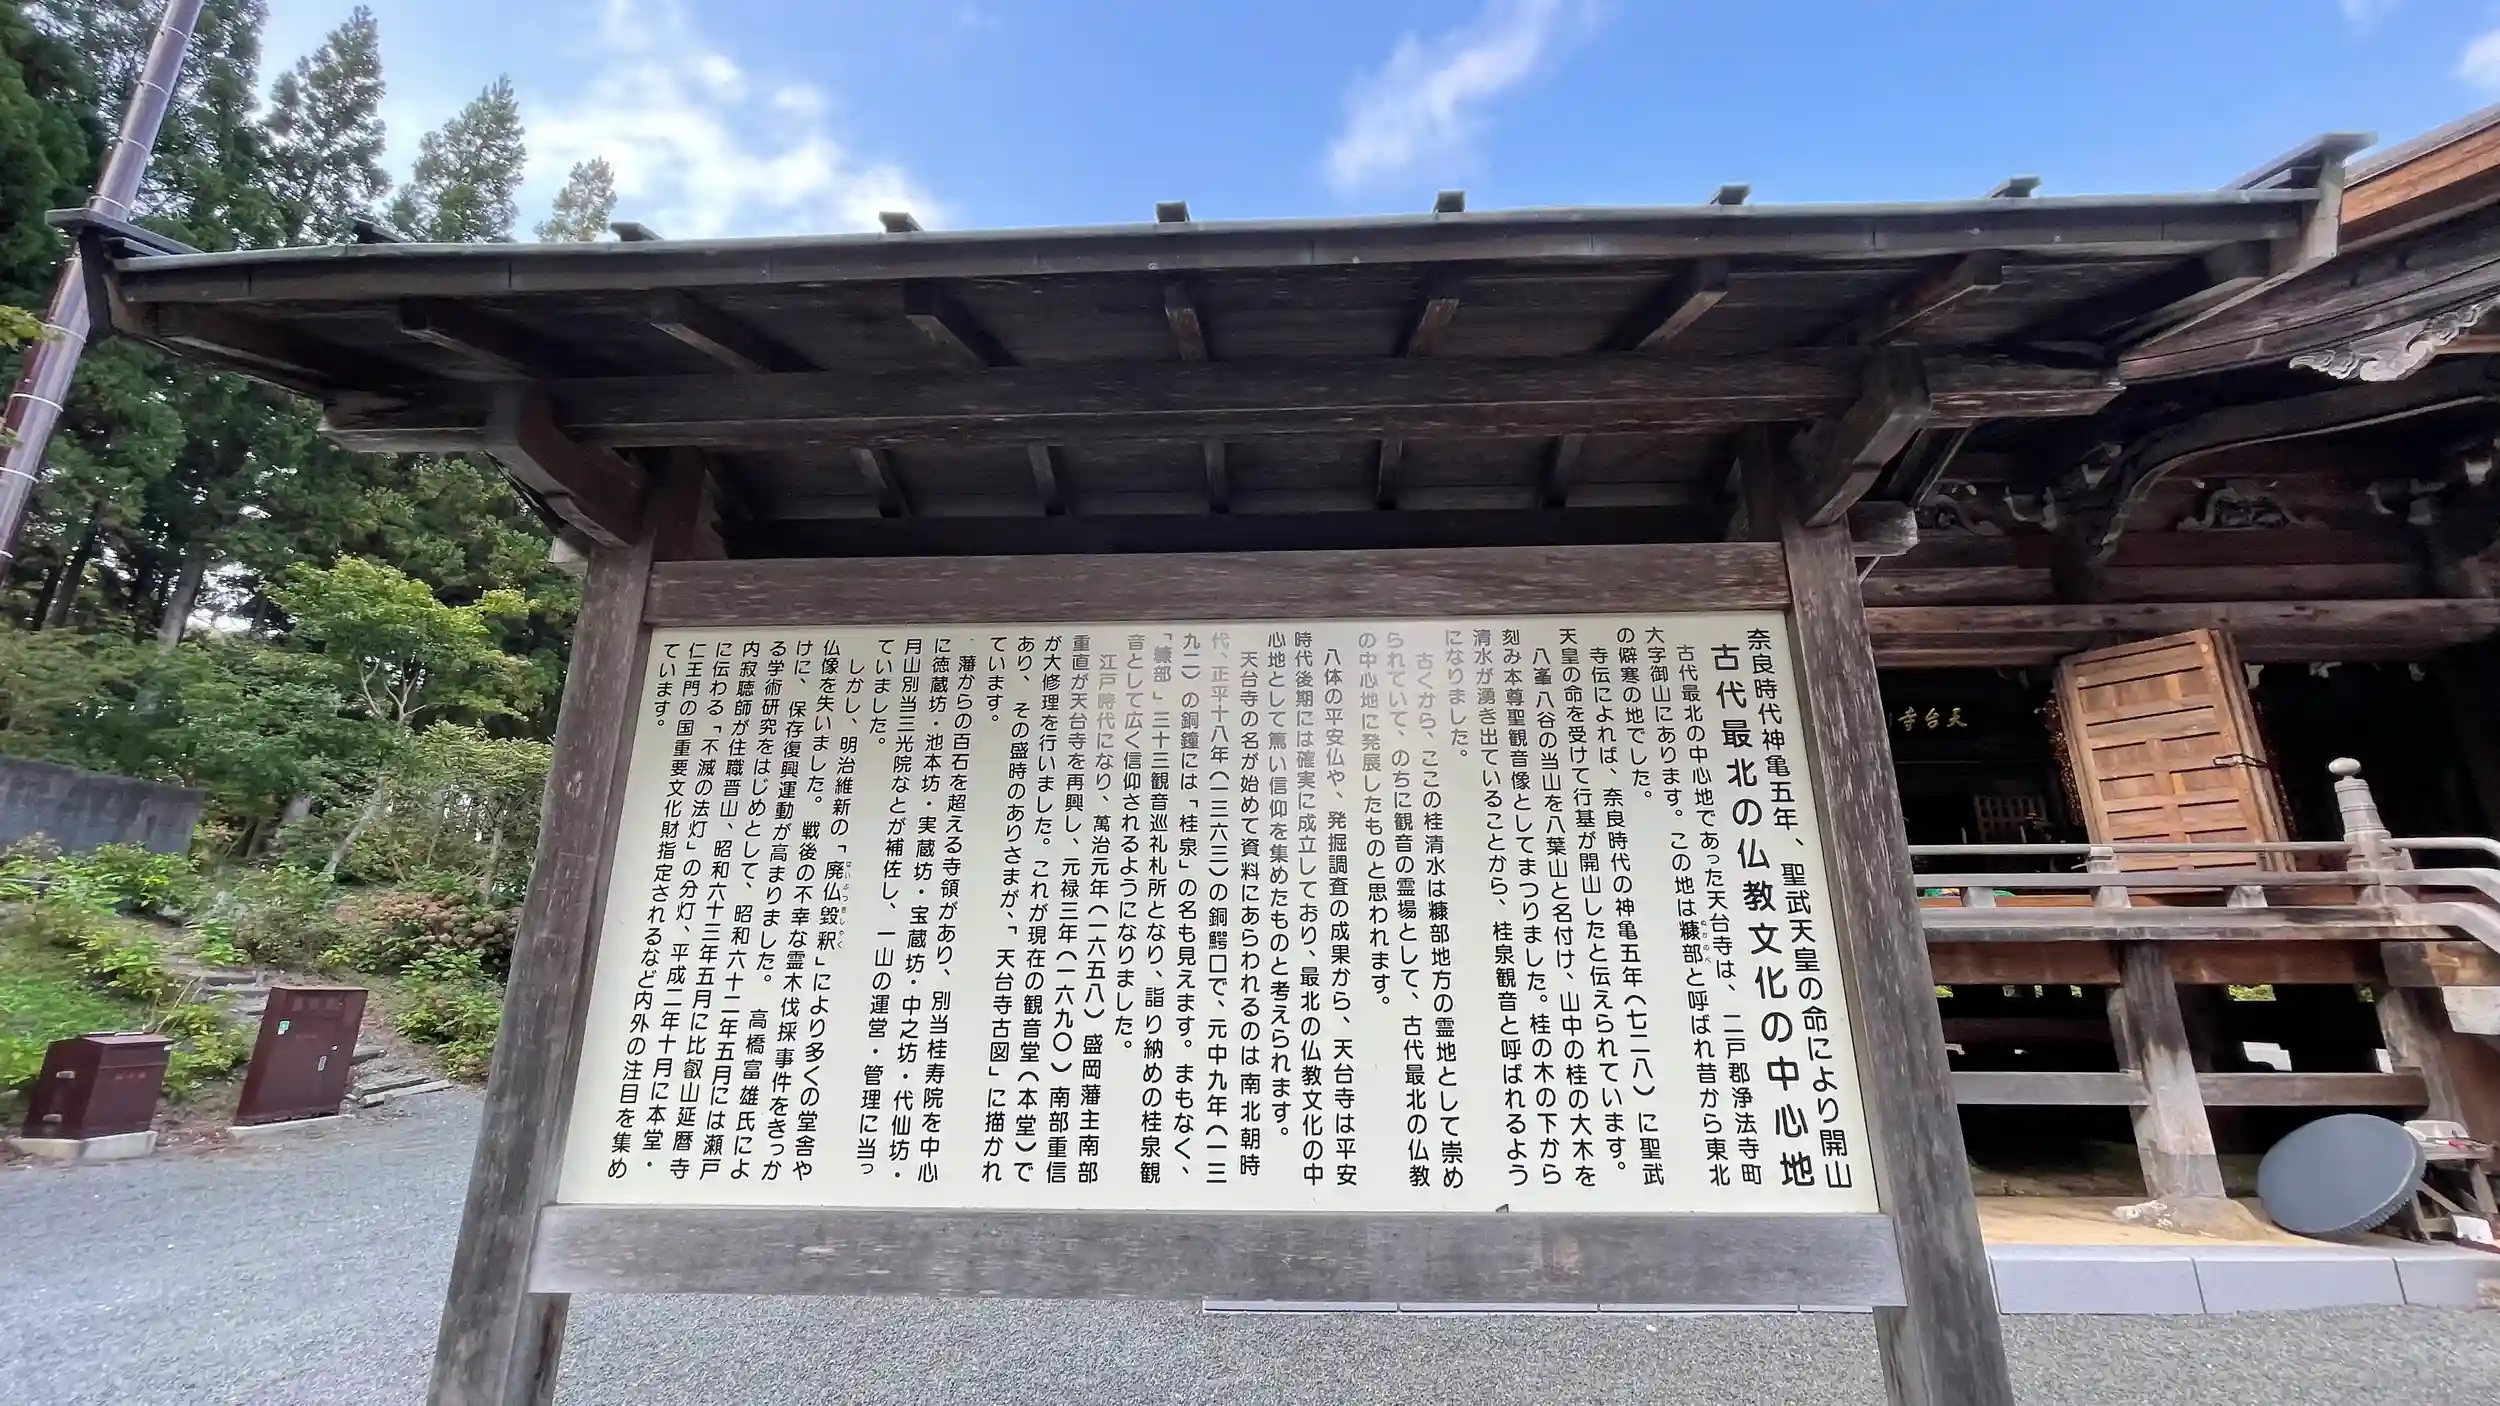 奈良時代神亀五年、聖武天皇の命により開山
古代最北の仏教文化の中心地
古代最北の中心地であった天台寺は、二戸郡浄法寺町
大字御山にあります。この地は糠部と呼ばれ昔から東北
ぬかのべ
の僻寒の地でした。
寺伝によれば、奈良時代の神亀五年(七二八)に聖武
天皇の命を受けて行基が開山したと伝えられています。
八峯八谷の当山を八葉山と名付け、山中の桂の大木を
刻み本尊聖観音像としてまつりました。桂の木の下から
清水が湧き出ていることから、桂泉観音と呼ばれるよう
になりました。
古くから、ここの桂清水は糠部地方の霊地として崇め
られていて、のちに観音の霊場として、古代最北の仏教
の中心地に発展したものと思われます。
八体の平安仏や、発掘調査の成果から、天台寺は平安
時代後期には確実に成立しており、最北の仏教文化の中
心地として篤い信仰を集めたものと考えられます。
天台寺の名が始めて資料にあらわれるのは南北朝時
代、正平十八年(一三六三)の銅鰐口で、元中九年(一三
九二)の銅鐘には「桂泉」の名も見えます。まもなく、
「糠部」三十三観音巡礼札所となり、詣り納めの桂泉観
音として広く信仰されるようになりました。
江戸時代になり、萬治元年(一六五八)盛岡藩主南部
重直が天台寺を再興し、元禄三年(一六九〇)南部重信
が大修理を行いました。これが現在の観音堂(本堂)で
あり、その盛時のありさまが、「天台寺古図」に描かれ
ています。
藩からの百石を超える寺領があり、別当桂寿院を中心
に徳蔵坊・池本坊・実蔵坊・宝蔵坊・中之坊・代仙坊・
月山別当三光院などが補佐し、一山の運営・管理に当っ
ていました。
しかし、明治維新の「廃仏毀釈」により多くの堂舎や
はいぶつきしゃく
仏像を失いました。戦後の不幸な霊木伐採事件をきっか
けに、保存復興運動が高まりました。高橋富雄氏によ
る学術研究をはじめとして、昭和六十二年五月には瀬戸
内寂聴師が住職晋山、昭和六十三年五月に比叡山延暦寺
に伝わる「不滅の法灯」の分灯、平成二年十月に本堂・
仁王門の国重要文化財指定されるなど内外の注目を集め
ています。
天台寺